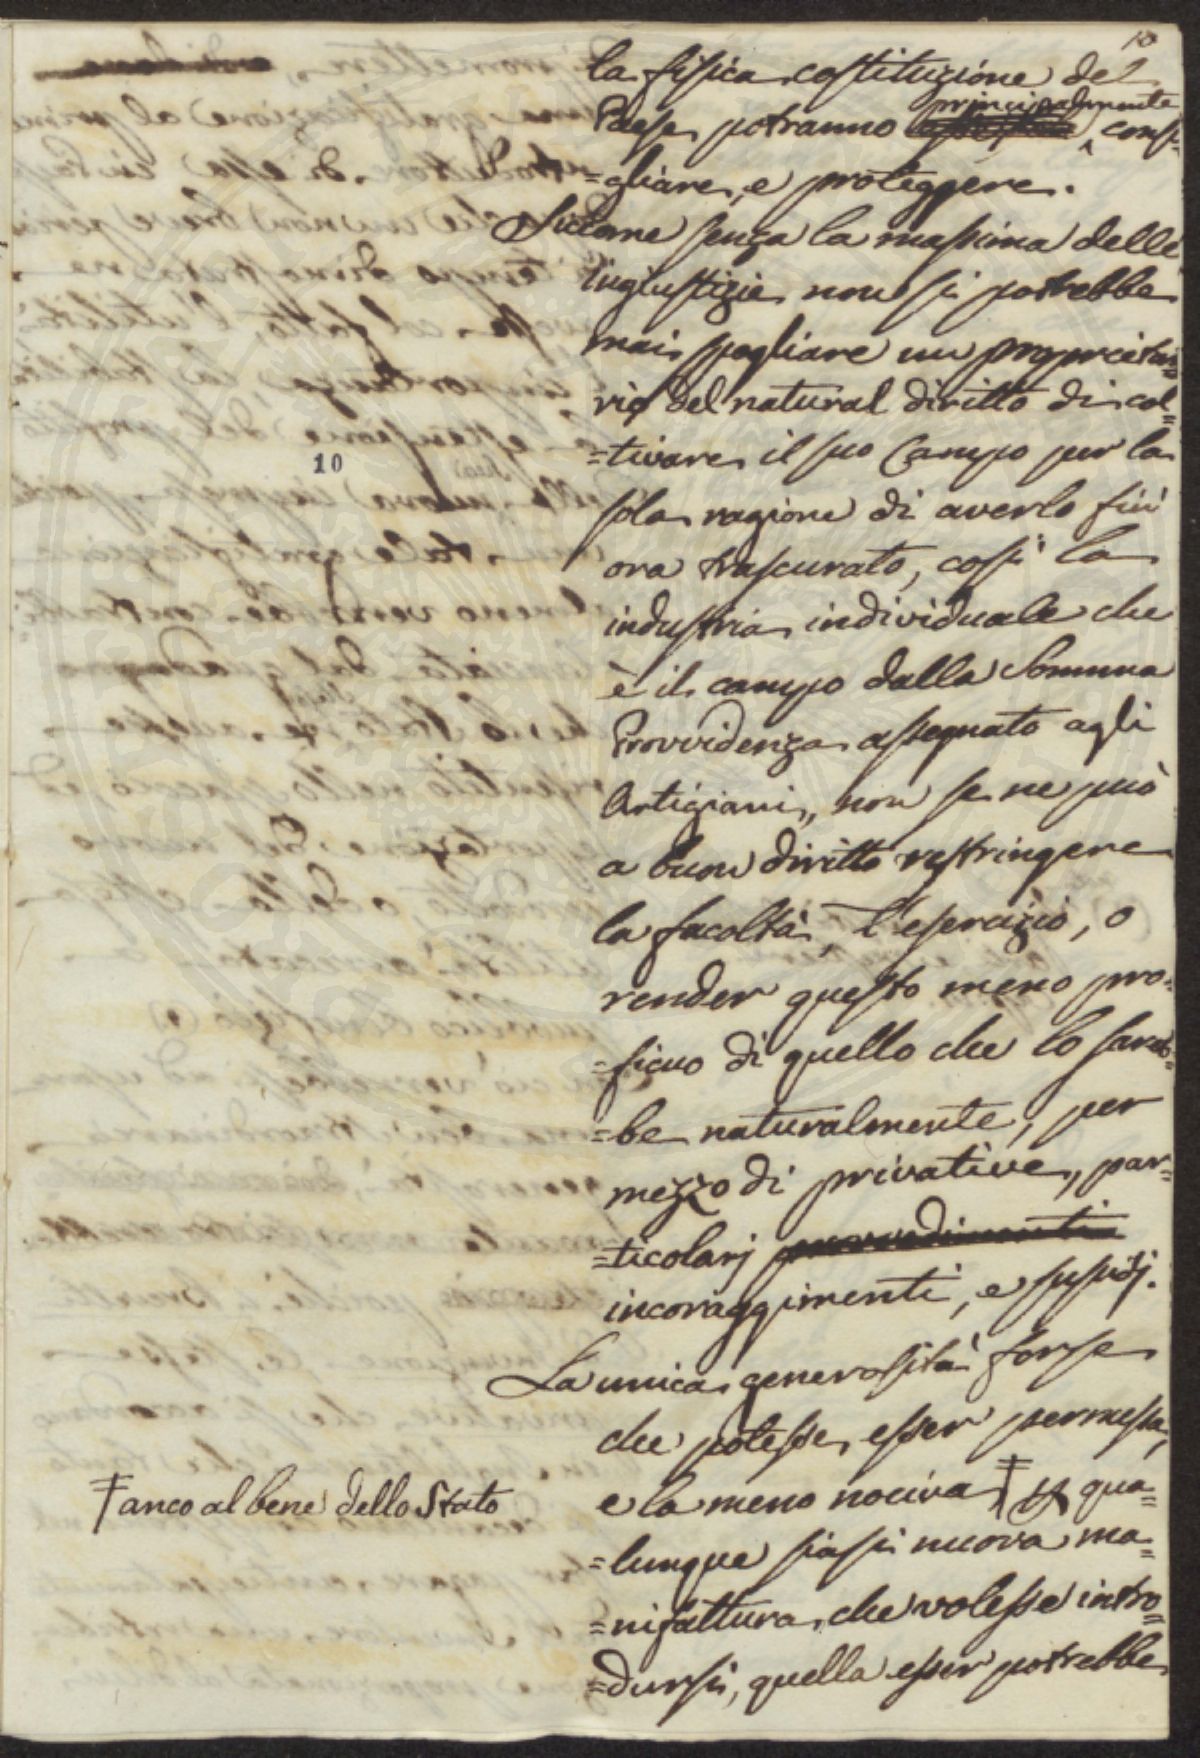 10
la fisica costituzione del
principalmente
Paese potranno consi-
=gliare, e proteggere.
Siccome senza la massima delle
ingiustizie non si potrebbe
mai spogliare un proprieta-
rio del natural diritto di col-
=tivare il suo Campo per la
10
sola ragione di averlo fin'
ora trascurato, così la
industria individuale che
è il campo dalla Somma
Provvidenza assegnato agli
Artigiani, non se ne può
a buon diritto restringere
la facoltà, l'esercizio, o
render questo meno pro-
=ficuo di quello che lo sareb-
=be naturalmente, per
mezzo di privative, par-
=ticolarj provvedimenti
incoraggimenti, e sussidj.
La unica generosità forse
che potesse esser permessa,
e la meno nociva qua-
ǂ anco al bene dello Stato
=lunque siasi nuova ma-
=nifattura, che volesse intro-
=dursi, quella esser potrebbe